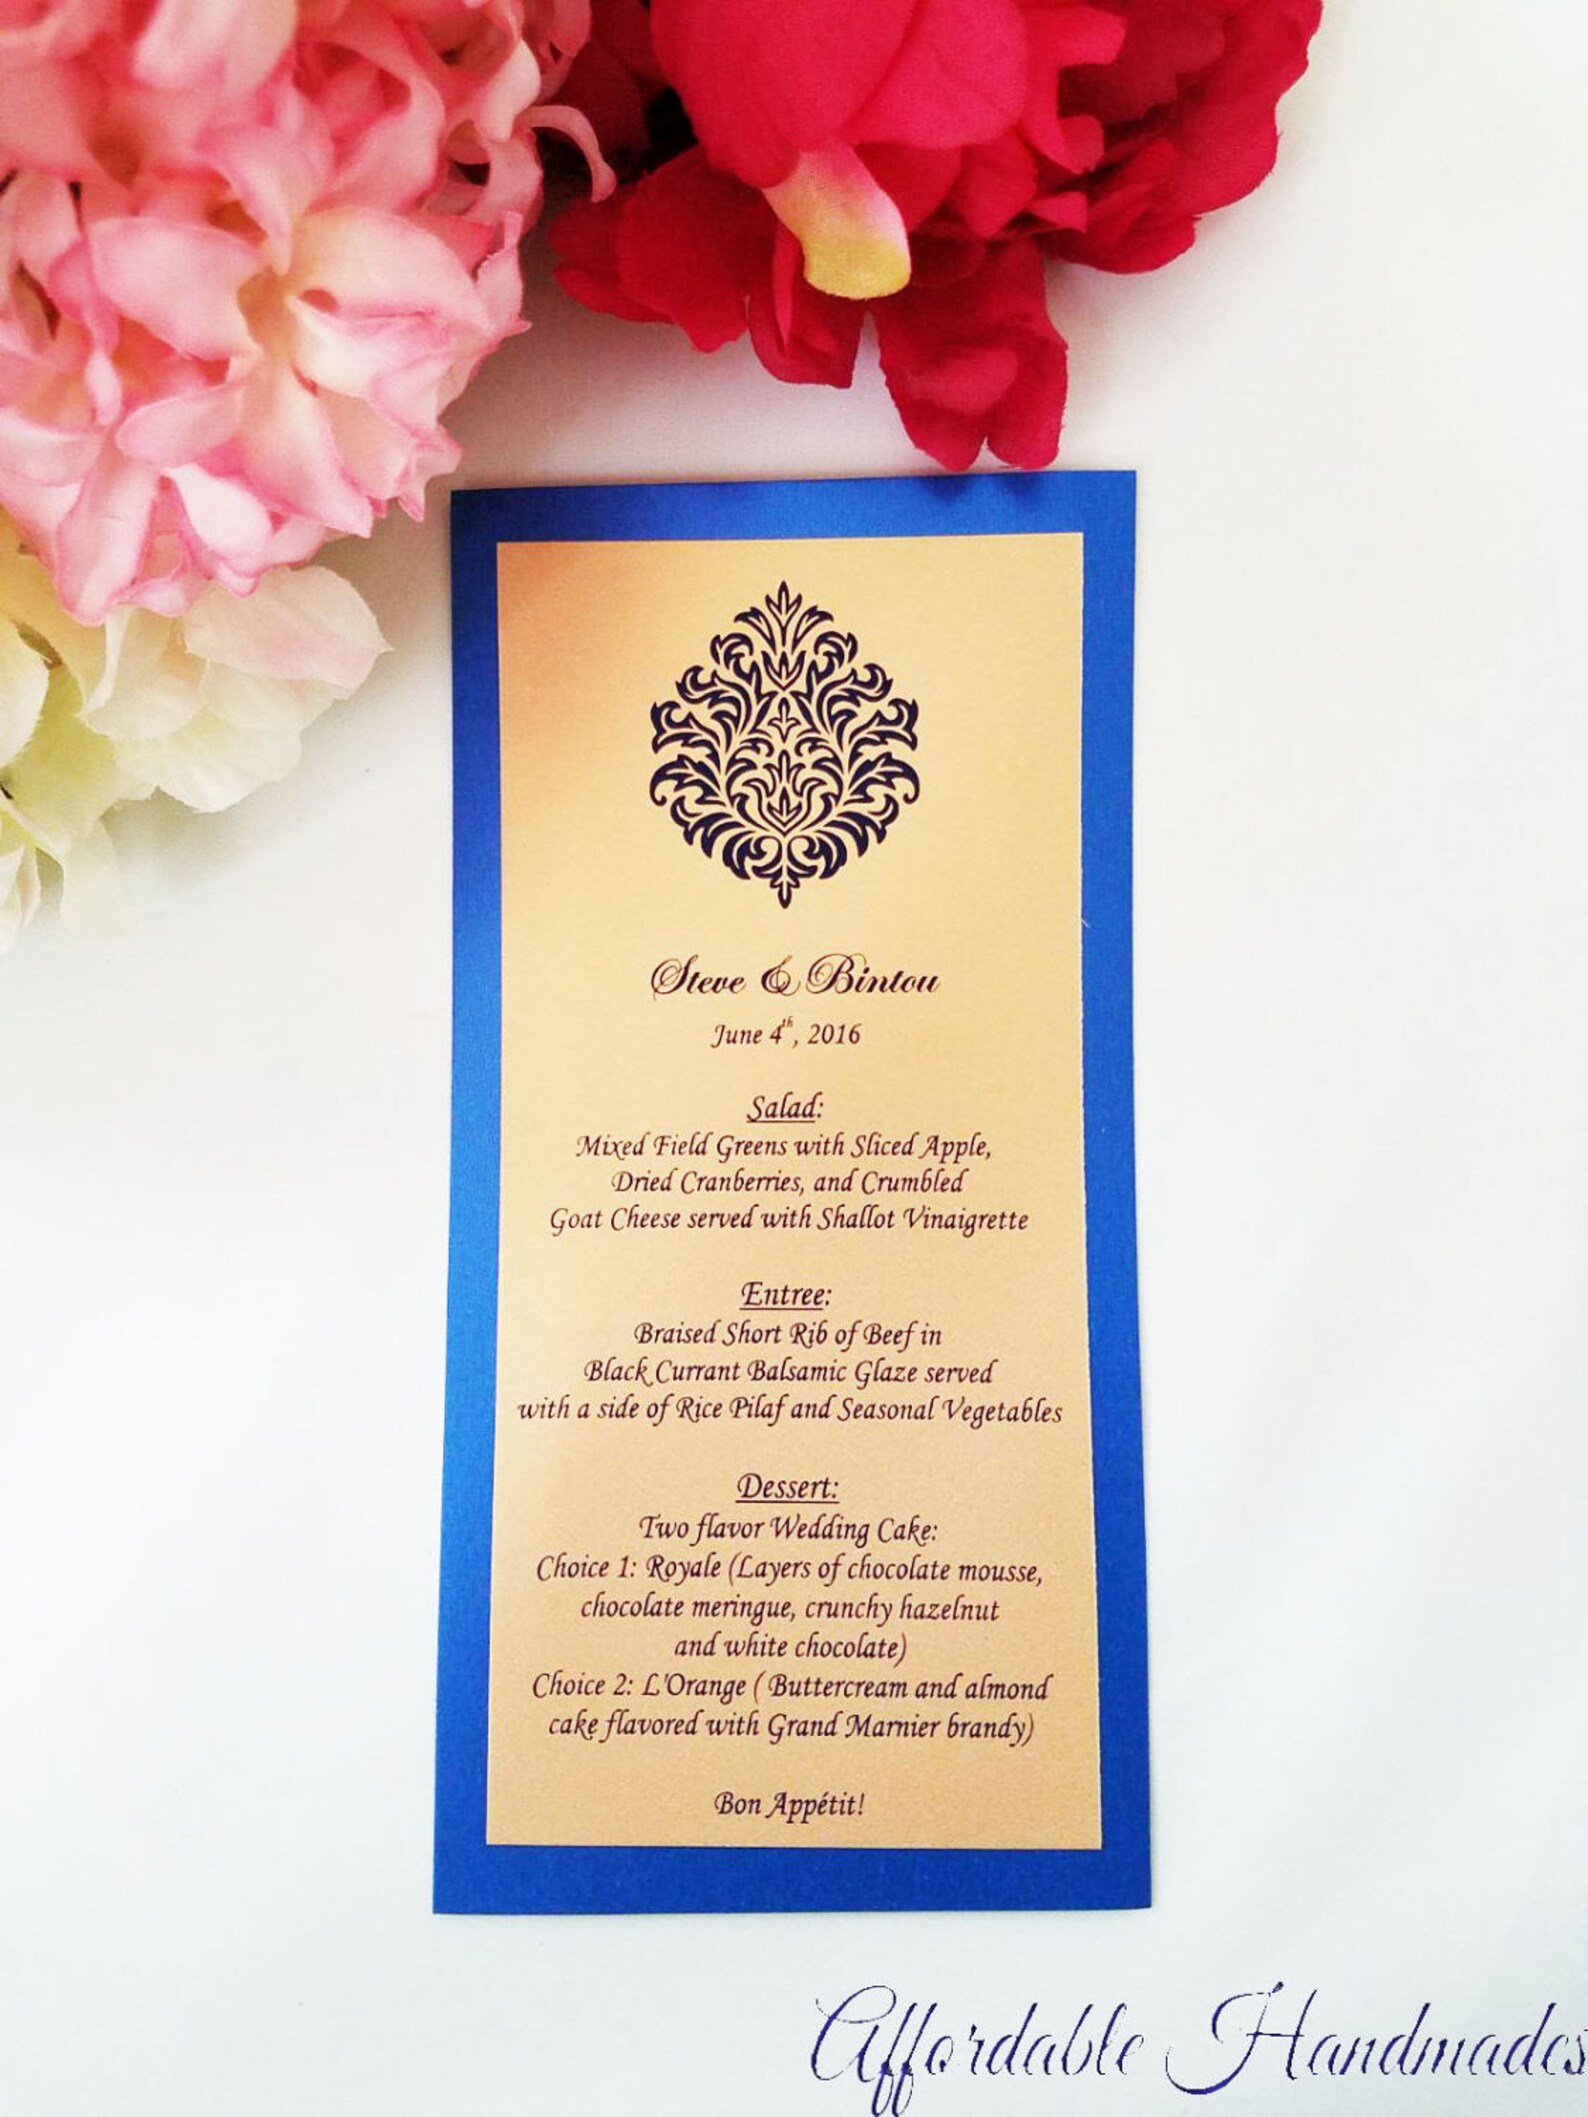 Steve & Bintou
June 4th, 2016
Salad:
Mixed Field Greens with Sliced Apple,
Dried Cranberries, and Crumbled
Goat Cheese served with Shallot Vinaigrette
Entree:
Braised Short Rib of Beef in
Black Currant Balsamic Glaze served
with a side of Rice Pilaf and Seasonal Vegetables
Dessert:
Two flavor Wedding Cake:
Choice 1: Royale (Layers of chocolate mousse,
chocolate meringue, crunchy hazelnut
and white chocolate)
Choice 2: L'Orange ( Buttercream and almond
cake flavored with Grand Marnier brandy)
Bon Appétit!
Affordable Handmades